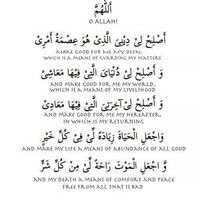 اَللّٰهُمَّ
O ALLAH!
اَصْلِحْ لِىْ دِيْنِىَ الَّذِىْ هُوَ عِصْمَةُ اَمْرِىْ
MAKE GOOD FOR ME MY DEEN,
WHICH IS A MEANS OF GUARDING MY MATTERS
وَ اَصْلِحْ لِىْ دُنْيَاىَ الَّتِىْ فِيْهَا مَعَاشِىْ
MAKE GOOD FOR ME MY WORLD,
WHICH IS A MEANS OF MY LIVELIHOOD
وَ اَصْلِحْ لِىْ الَّتِىْ فِيْهَا مَعَادِىْ
MAKE GOOD FOR ME MY HEREAFTER,
IN WHICH IS MY RETURNING
وَاجْعَلِ الْحَيَاةَ زِيَادَةً لِىْ فِىْ كُلِّ خَيْرٍ
AND MAKE MY LIFE A MEANS OF ABUNDANCE OF ALL GOOD
وَ اجْعَلِ الْمَوْتَ رَاحَةً لِىْ مِنْ كُلِّ شَرٍّ
AND MY DEATH A MEANS OF COMFORT AND PEACE
FREE FROM ALL THAT IS BAD